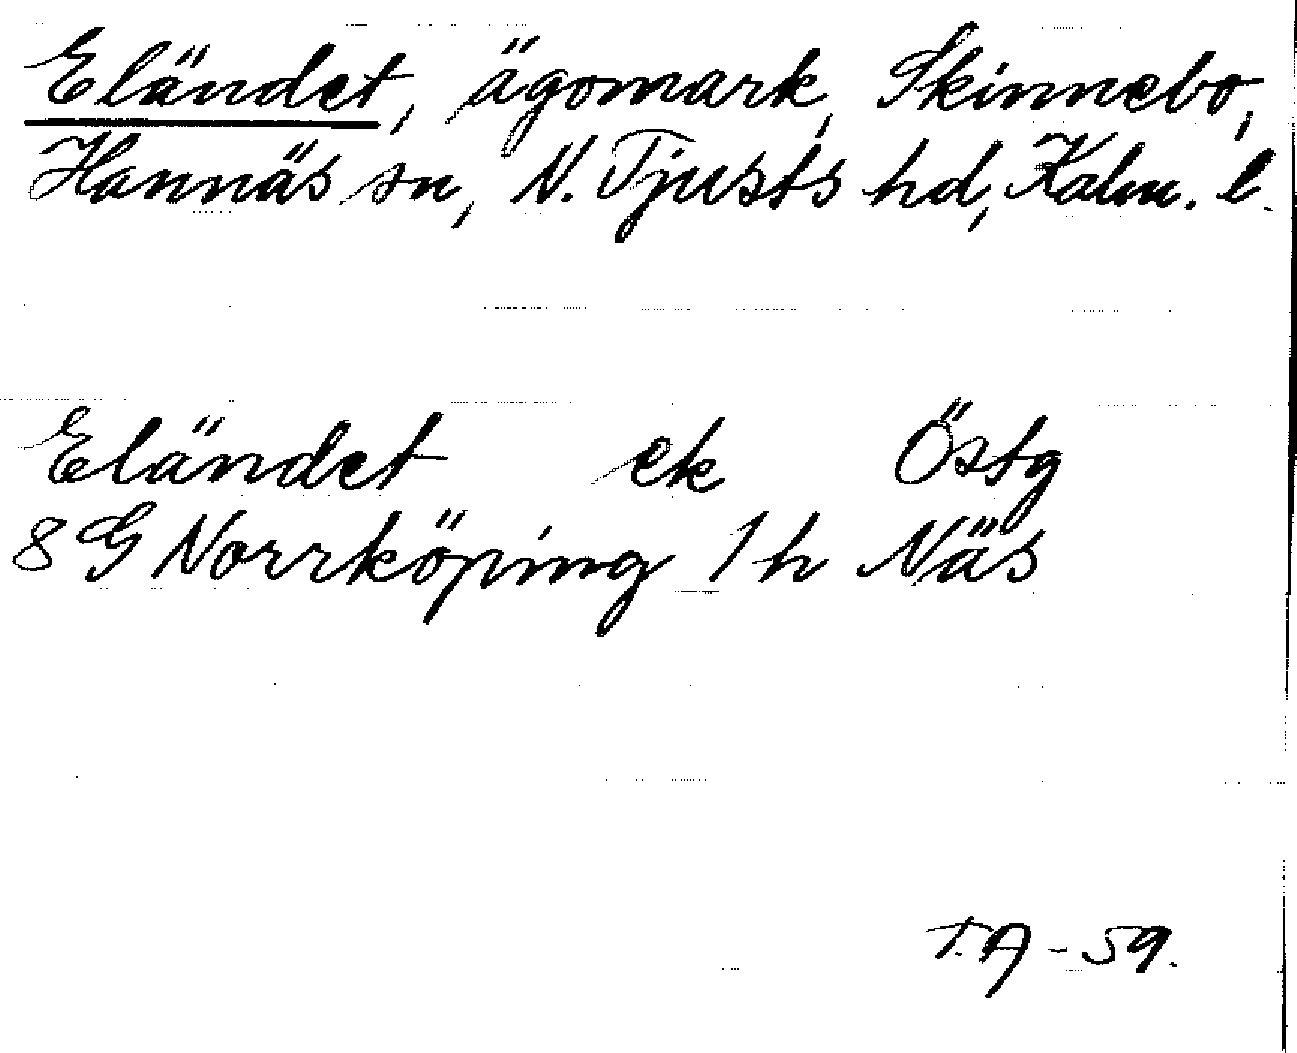 Eländet, ägomark, Skinnebo,
Hannäs sn, N. Tjusts hd, Kalm. l.
Eländet ek Östg
8 G Norrköping 1 h Näs
T.A - 59.